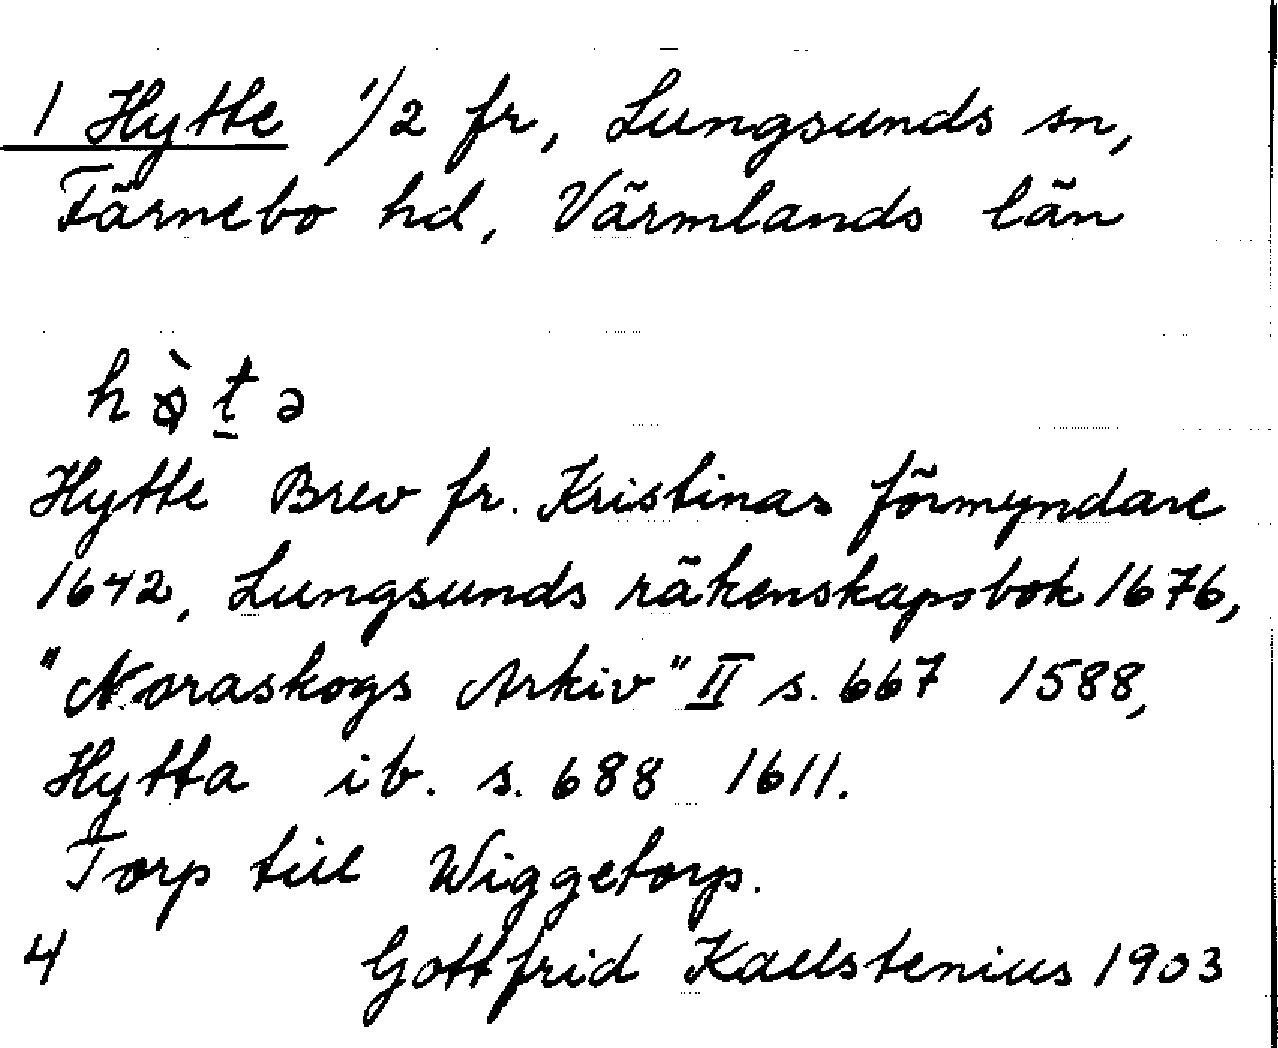 1 Hytte 1/2 fr, Lungsunds sn,
Färnebo hd, Värmlands län
hø̀t̠ə
Hytte Brev fr. Kristinas förmyndare
1642, Lungsunds räkenskapsbok 1676,
"Noraskogs Arkiv" II s. 667 1588,
Hytta ib. s. 688 1611.
Torp till Wiggetorp.
4 Gottfrid Kallstenius 1903